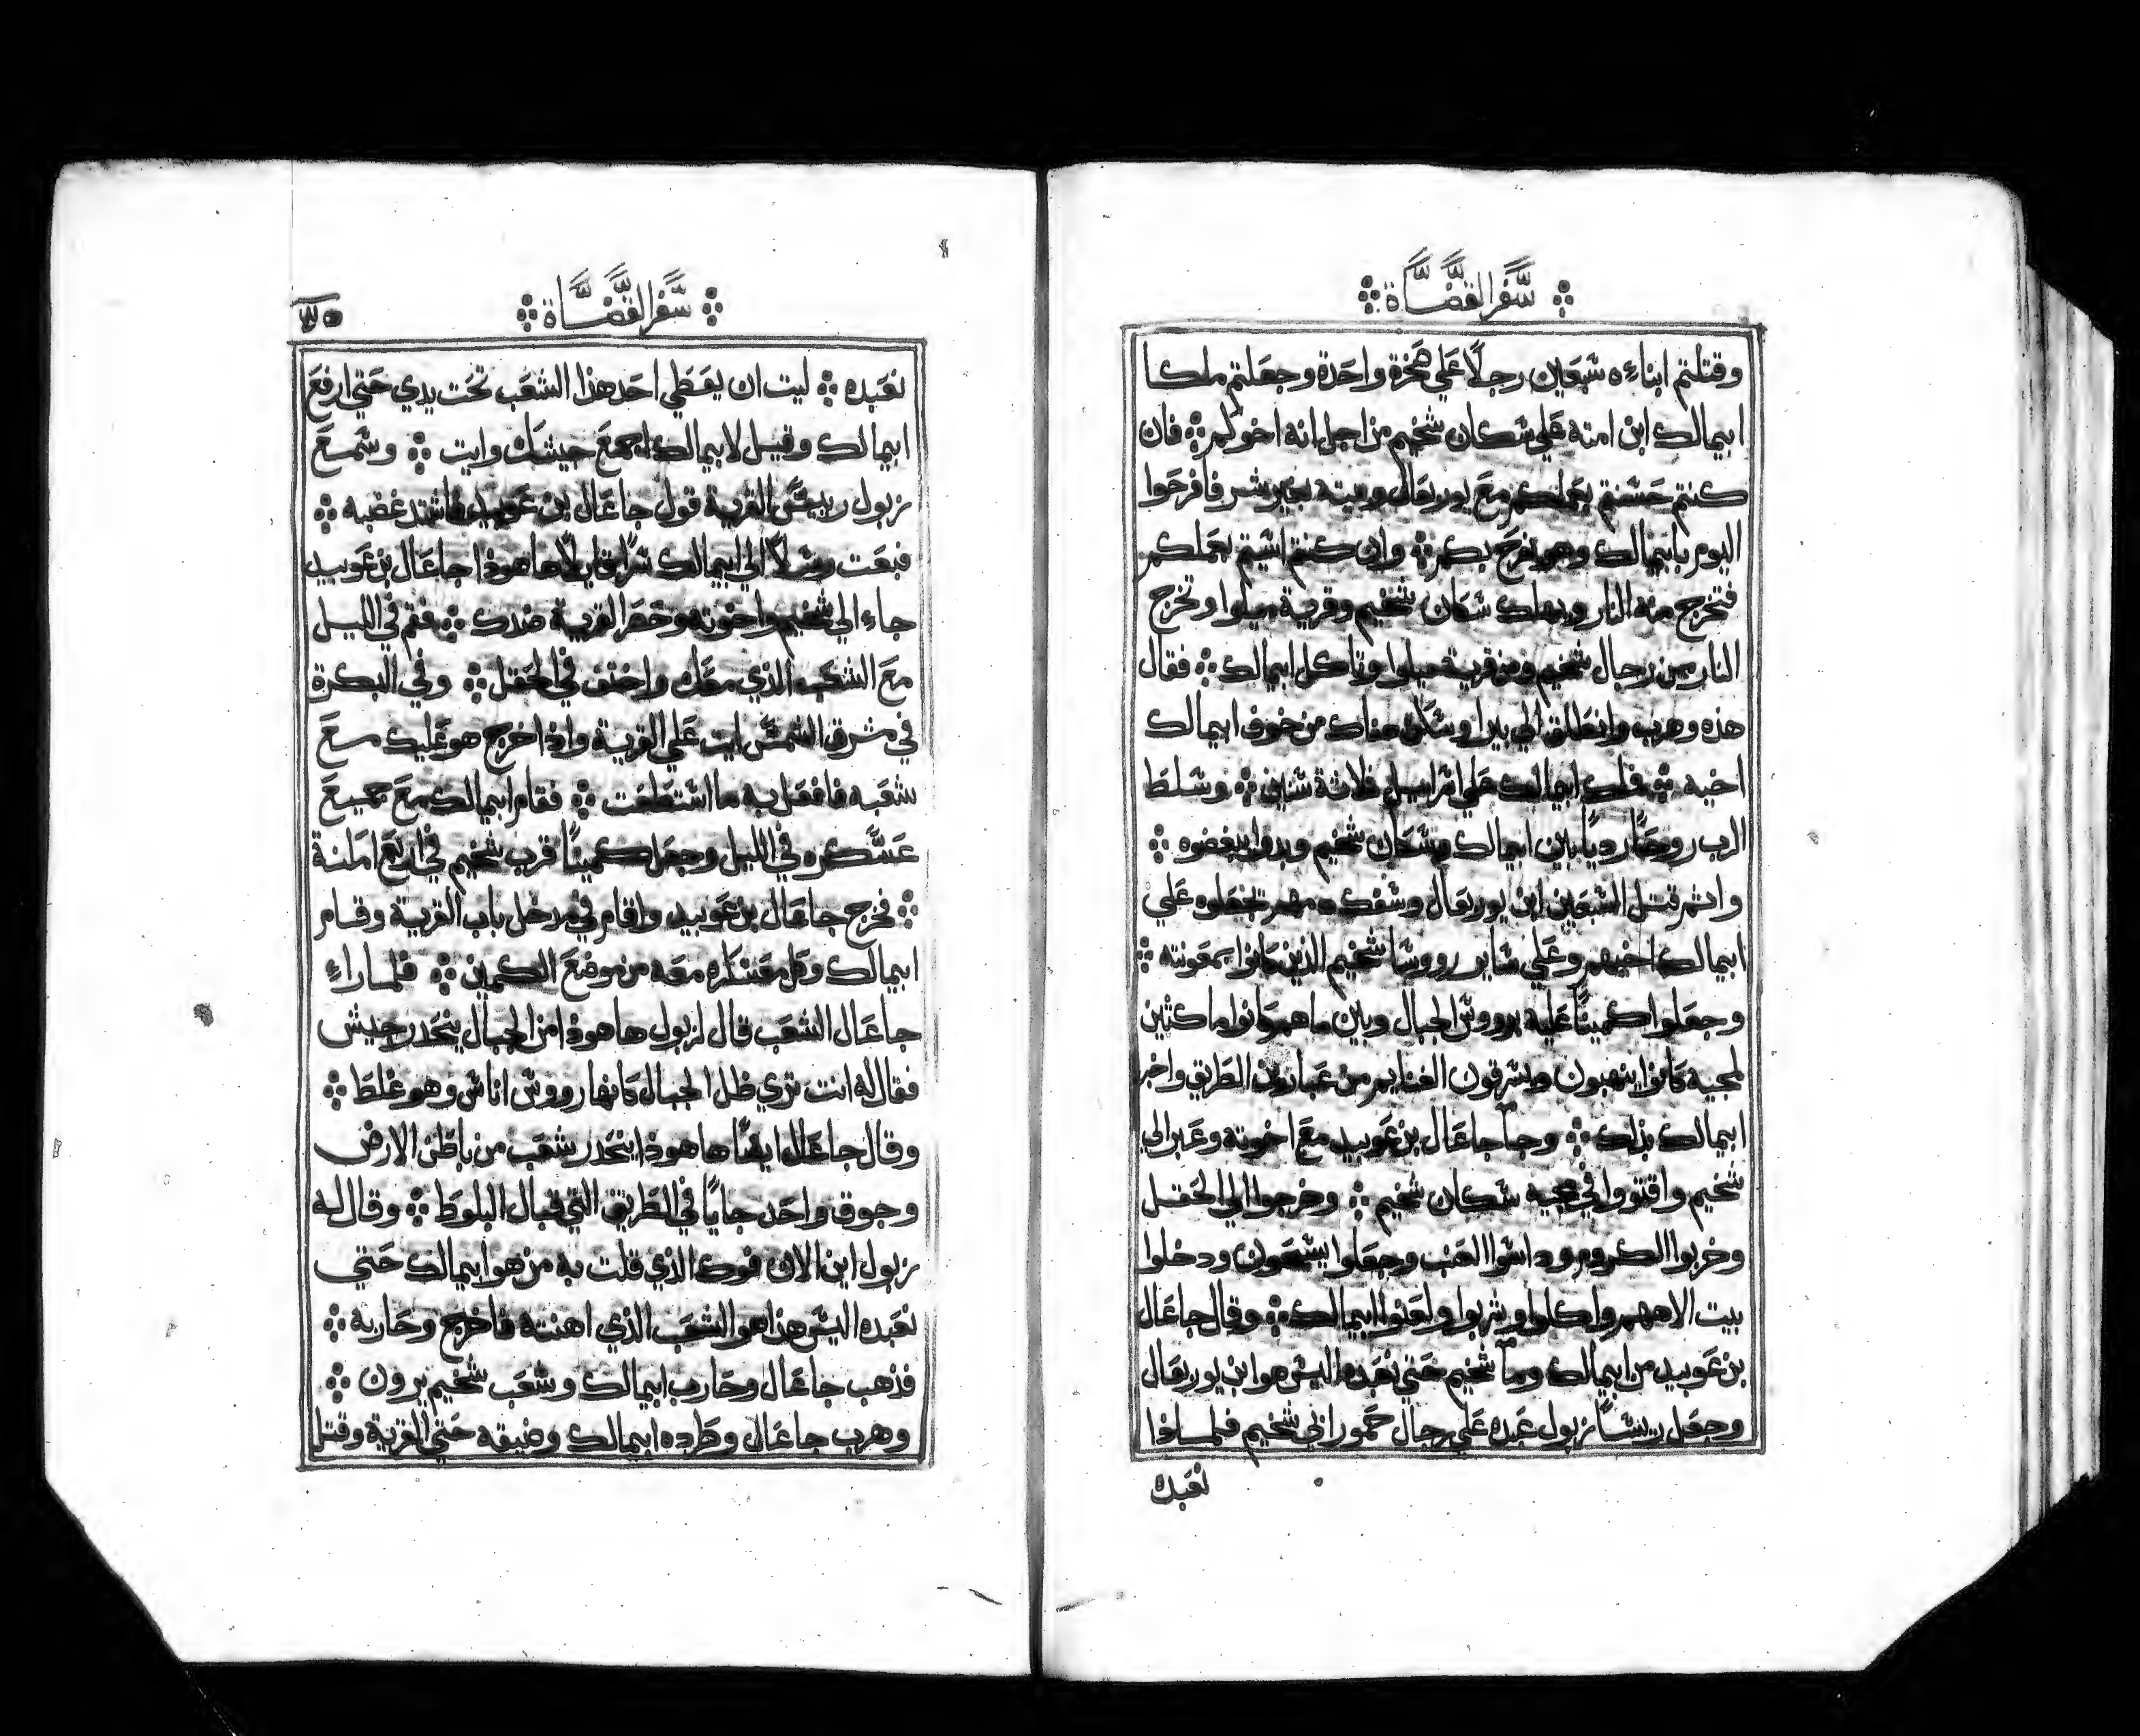 سفر القضاة
وقتلتم ابناءه سبعين رجلًا علي صخرة واحدة وجعلتم ملكا
ابيمالك ابن امته علي سكان شخيم من اجل انه اخوكم ܀ فان
كنتم حسنتم بعملكم مع يوربعال وبيته بغير شر فافرحوا
اليوم بابيمالك وهو يفرح بكم ܀ وان كنتم اسيتم بعملكم
فتخرج منه النار ويهلك سكان شخيم وقرية ميلوا وتخرج
النار من رجال شخيم ومن قرية ميلوا وتاكل ابيمالك ܀ فقال
هذه وهرب وانطلق الي بيرا وسكن هناك من خوف ابيمالك
اخيه ܀ فملك ابيمالك علي اسراييل ثلاثة سنين ܀ وسلط
الرب روحًا رديًا بين ابيمالك وسكان شخيم وبدوا يبغضوه ܀
واثم قتل السبعين ابن يوربعال وسفك دمهم تجعلوه علي
ابيمالك اخيهم وعلي ساير رووسا شخيم الذين كانوا بمعونته ܀
وجعلوا كمينًا عليه برووس الجبال وبين ما هم كانوا ماكثين
لمجيه كانوا ينهبون ويسرقون الغنايم من عبارين الطريق واخبر
ابيمالك بذلك ܀ وجا جاعال بن عوبيد مع اخوته وعبر الي
شخيم واقتووا في مجيه سكان شخيم ܀ وخرجوا الي الحقل
وخربوا الكروم وداسوا العنب وجعلوا يسبحون ودخلوا
بيت الاههم واكلوا وشربوا ولعنوا ابيمالك ܀ وقال جاعال
بن عوبيد من ابيمالك وما شخيم حتي نعبده اليس هو ابن يوربعال
وجعل ريسًا زبول عبده علي رجال حمور ابي شخيم فلماذا
نعبده
سفر القضاة
نعبده ܀ ليت ان يعطي احد هذا الشعب تحت يدي حتي ارفع
ابيمالك وقيل لابيمالك اجمع جيشك وايت ܀ وسمع
زبول رييس القرية قول جاعال بن عوبيد فاشتد غضبه ܀
فبعت رسلًا الي ابيمالك سرًا قايلًا ها هوذا جاعال بن عوبيد
جاء الي شخيم واخوته وحصر القرية ضدك ܀ فقم في الليل
مع الشعب الذي معك واختف في الحقل ܀ وفي البكرة
في مشرق الشمس ايت علي القرية واذا خرج هو عليك مع
شعبه فافعل به ما استطعت ܀ فقام ابيمالك مع جميع
عسكره في الليل وجعل كمينًا قرب شخيم في اربع امكنة
܀ فخرج جاعال بن عوبيد واقام في مدخل باب القرية وقام
ابيمالك وكل معسكره معه من موضع الكمين ܀ فلما راء
جاعال الشعب قال لزبول ها هوذا من الجبال ينحدر جيش
فقال له انت تري ظل الجبال كانها رووس اناس وهو غلط ܀
وقال جاعال ايضًا ها هوذا ينحدر شعب من باطن الارض
وجوق واحد جايًا في الطريق التي قبال البلوط ܀ وقال له
زبول اين الان فوك الذي قلت به من هو ابيمالك حتي
نعبده اليس هذا هو الشعب الذي اهنته فاخرج وحاربه ܀
فذهب جاعال وحارب ابيمالك وشعب شخيم يرون ܀
وهرب جاعال وطرده ابيمالك وضيقه حتي القرية وقتل